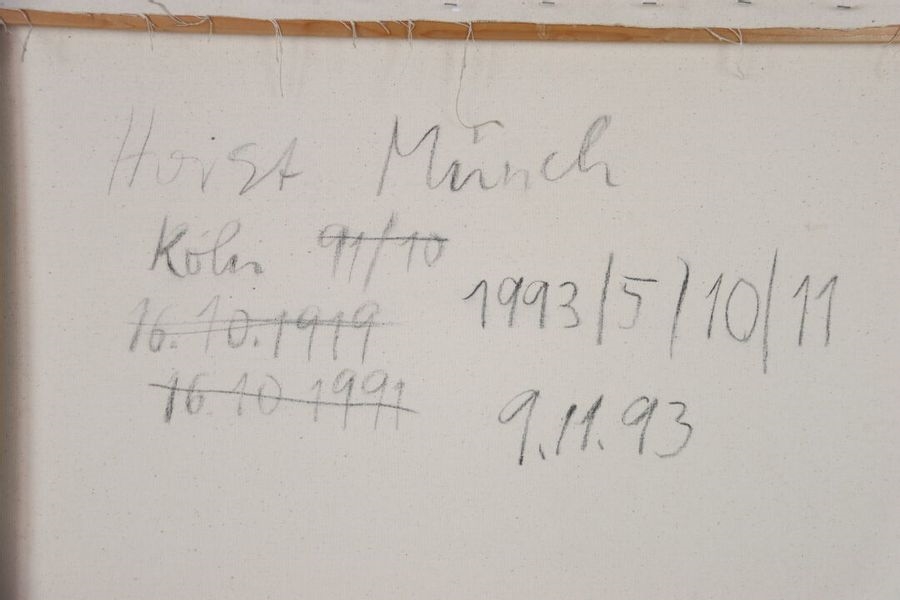 Horst Münch
Köln 91/10
16.10.1919
16.10 1991
1993/5/10/11
9.11.93